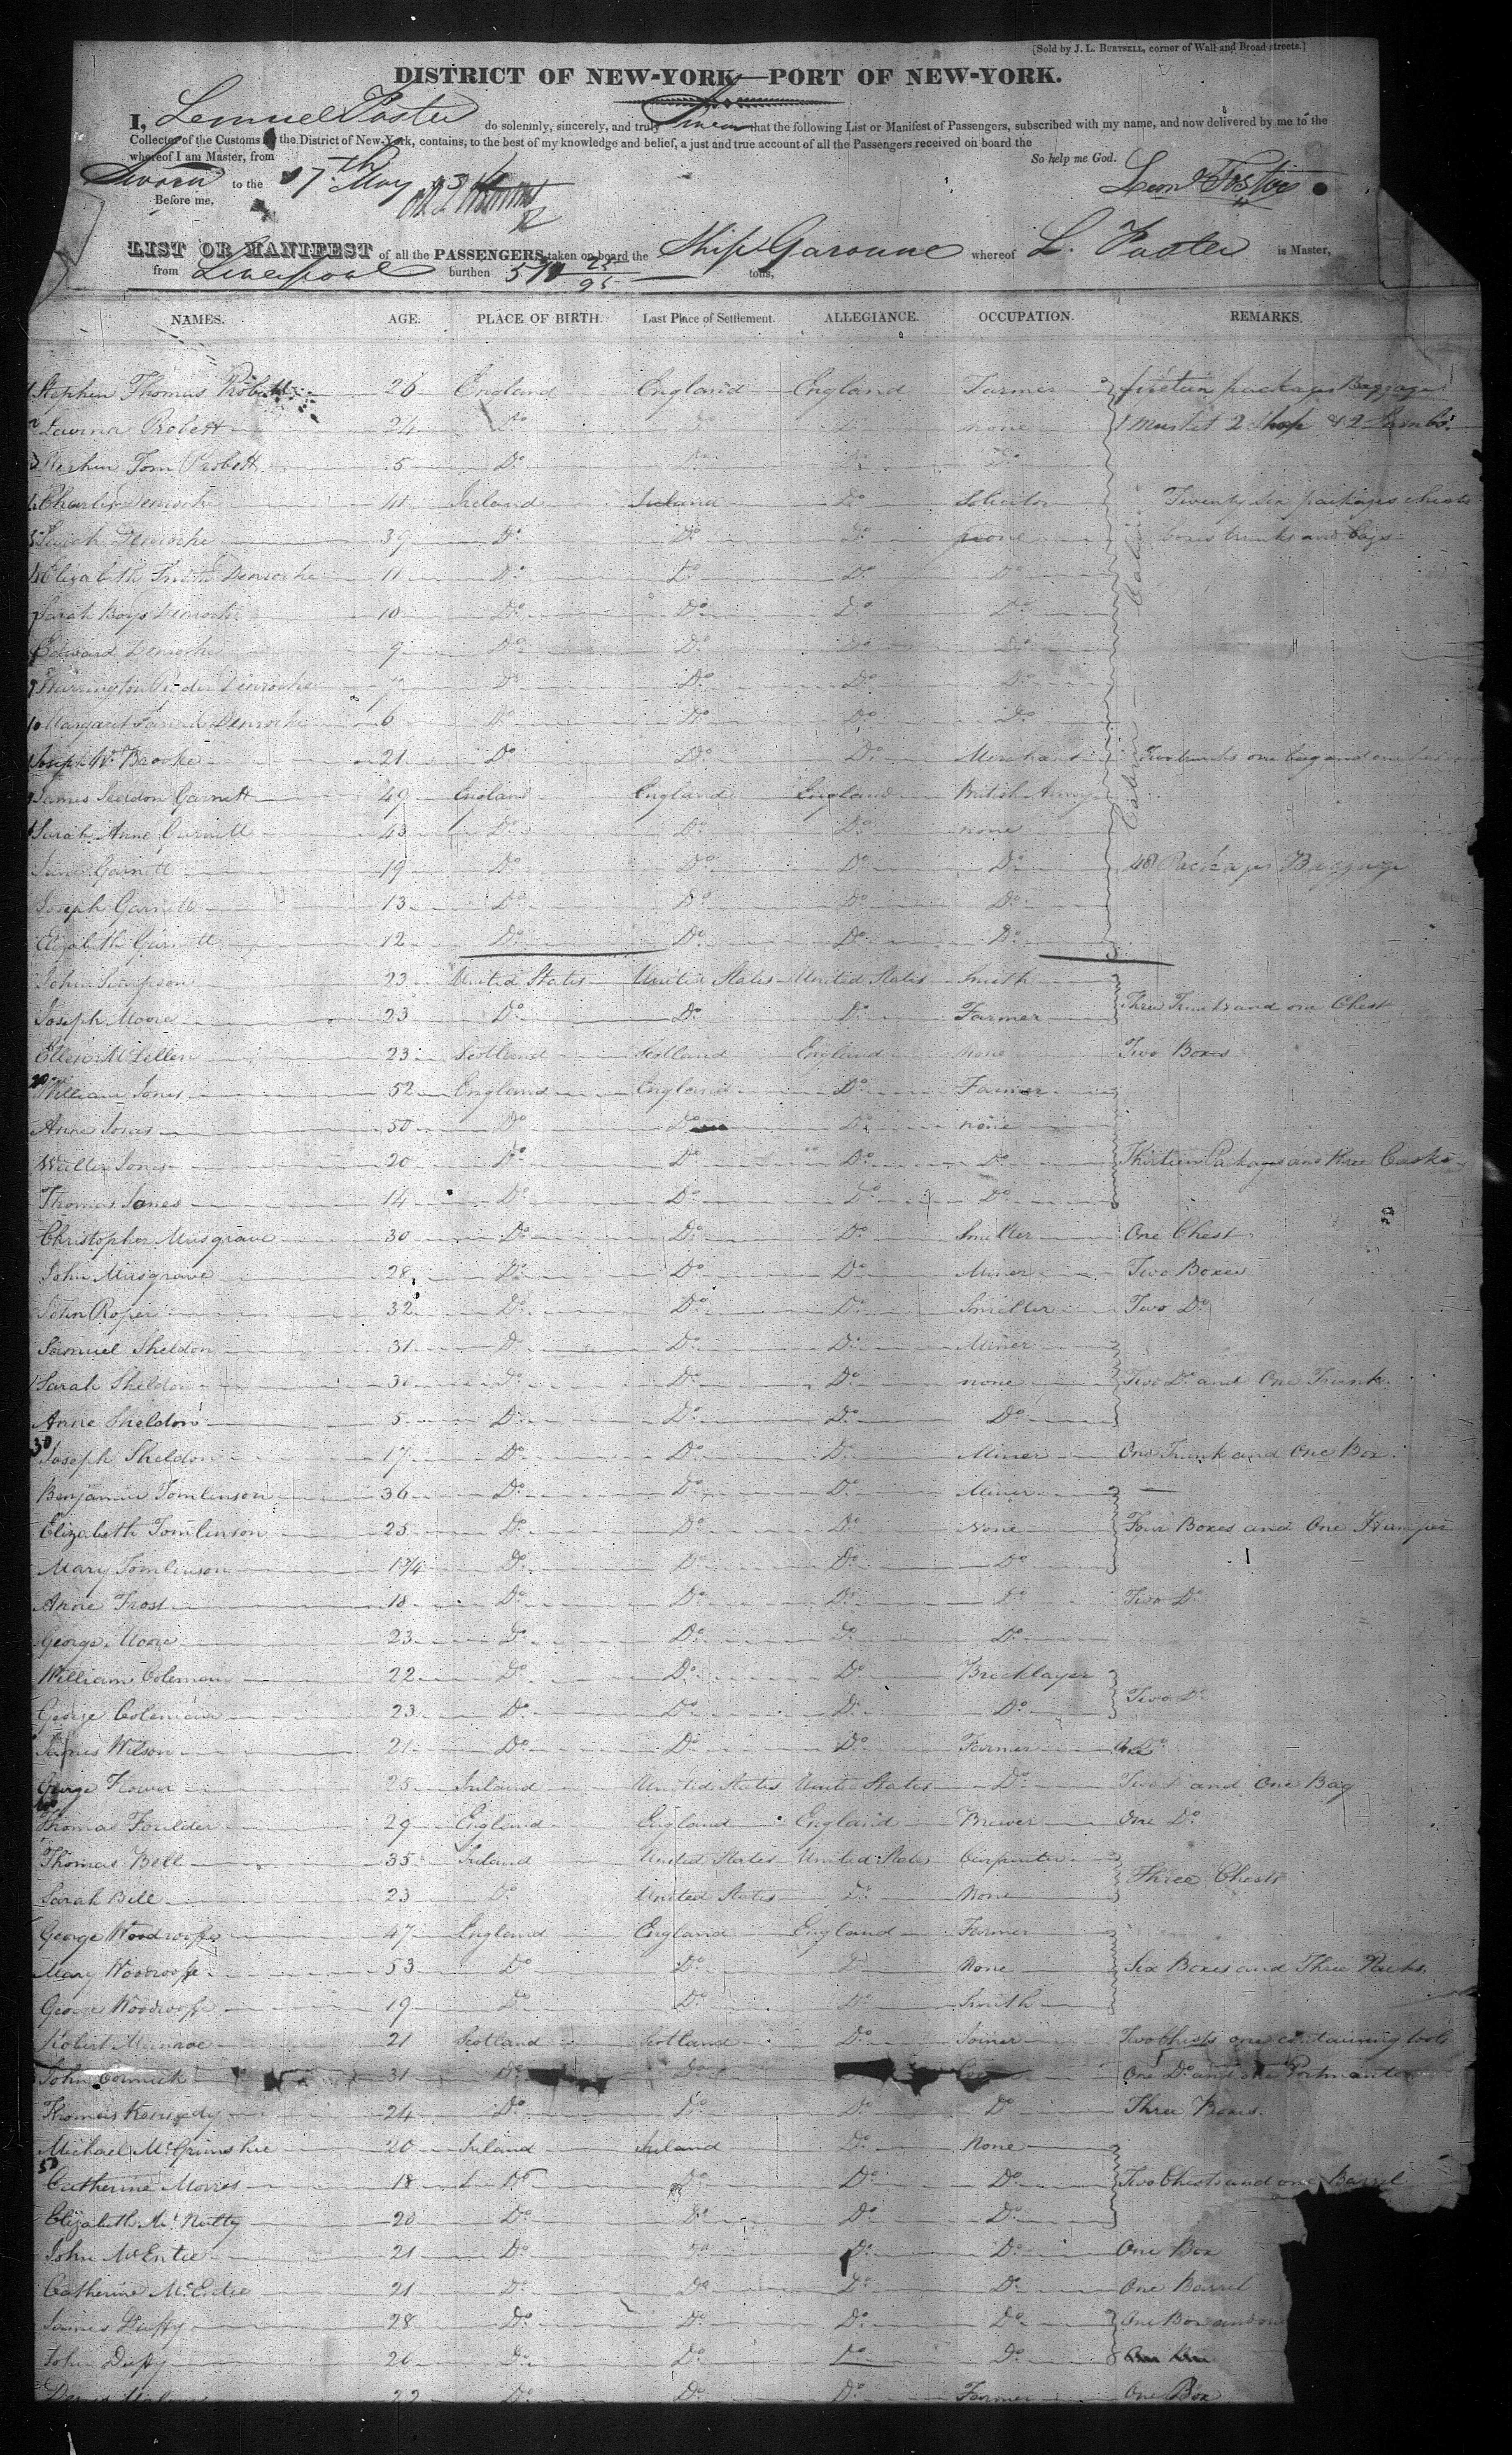 [Sold by J. L. BURTSELL, corner of Wall and Broad streets.]
DISTRICT OF NEW-YORK—PORT OF NEW-YORK.
I, Lemuel Foster do solemnly, sincerely, and truly Swear that the following List or Manifest of Passengers, subscribed with my name, and now delivered by me to the
Collector of the Customs of the District of New-York, contains, to the best of my knowledge and belief, a just and true account of all the Passengers received on board the
whereof I am Master, from So help me God.
Sworn to the 17th May 34 Lem Foster
Before me,
LIST OR MANIFEST of all the PASSENGERS taken on board the Ship Garonne whereof L. Foster is Master,
from Liverpool burthen 25/95 tons,
NAMES. AGE. PLACE OF BIRTH. Last Place of Settlement. ALLEGIANCE. OCCUPATION. REMARKS.
Stephen Thomas Probett 26 England England England Farmer packages Baggage
Probett 24 Do none 1 Musket 2 & 2
Tom Probett 5 Do Do Do
Charles Denroche 41 Ireland Ireland Do Solicitor Twenty Six packages chests
Sarah Denroche 39 Do Do Do none boxes trunks and bags
Elizabeth Smith Denroche 11 Do Do Do Do
Sarah Boys Denroche 10 Do Do Do Do
Edward Denroche 9 Do Do Do Do
Denroche 7 Do Do Do Do
10 Margaret Denroche 6 Do Do Do Do
Joseph W. Brooke 21 Do Do Do Merchant Two trunks one bag and one
James Seddon Garnett 49 England England England British Army
Sarah Anne Garnett 43 Do Do Do none
Garnett 19 Do Do Do Do 48 Packages Baggage
Joseph Garnett 13 Do Do Do Do
Elizabeth Garnett 12 Do Do Do Do
John Simpson 23 United States United States United States Smith
Joseph Moore 23 Do Do Do Farmer Three Trunks and one Chest
Ellen McLellen 23 Scotland Scotland England none Two Boxes
20 William Jones 52 England England Do Farmer
Anne Jones 50 Do Do Do none
Walter Jones 20 Do Do Do Do Thirteen Packages and three Casks
Thomas Jones 14 Do Do Do Do
Christopher Musgrave 30 Do Do Do Smelter One Chest
John Musgrave 28 Do Do Do Miner Two Boxes
John Roper 32 Do Do Do Smelter Two Do
Samuel Sheldon 31 Do Do Do Miner
Sarah Sheldon 30 Do Do Do none Two Do and One Trunk
Anne Sheldon 5 Do Do Do Do
30 Joseph Sheldon 17 Do Do Do Miner One Trunk and One Box
Benjamin Tomlinson 36 Do Do Do Miner
Elizabeth Tomlinson 25 Do Do Do None Four Boxes and One Hamper
Mary Tomlinson 1 3/4 Do Do Do Do
Anne Frost 18 Do Do Do Do Two Do
George Moore 23 Do Do Do Do
William Coleman 22 Do Do Do Bricklayer
George Coleman 23 Do Do Do Do Two Do
James Wilson 21 Do Do Do Farmer One Do
George 25 Ireland United States United States Do Two Do and One Bag
40 Thomas Foulder 29 England England England Brewer One Do
Thomas Bell 35 Ireland United States United States Carpenter
Sarah Bell 23 Do United States Do None Three Chests
George Woodroofe 47 England England England Farmer
Mary Woodroofe 53 Do Do Do None Six Boxes and Three Packs
George Woodroofe 19 Do Do Do Smith
Robert Munroe 21 Scotland Scotland Do Joiner Two Chests one containing tools
John Cormick 31 Do Do One Do and one Portmanteau
Thomas Kennedy 24 Do Do Do Do Three Boxes
Michael 20 Ireland Ireland Do None
50 Catherine Morris 18 Do Do Do Do Two Chests and one Barrel
Elizabeth McNutty 20 Do Do Do Do
John McEntee 21 Do Do Do Do One Box
Catherine McEntee 21 Do Do Do Do One Barrel
James Duffy 28 Do Do Do Do One Box and one
John Duffy 20 Do Do Do Do
22 Do Do Do Farmer One Box